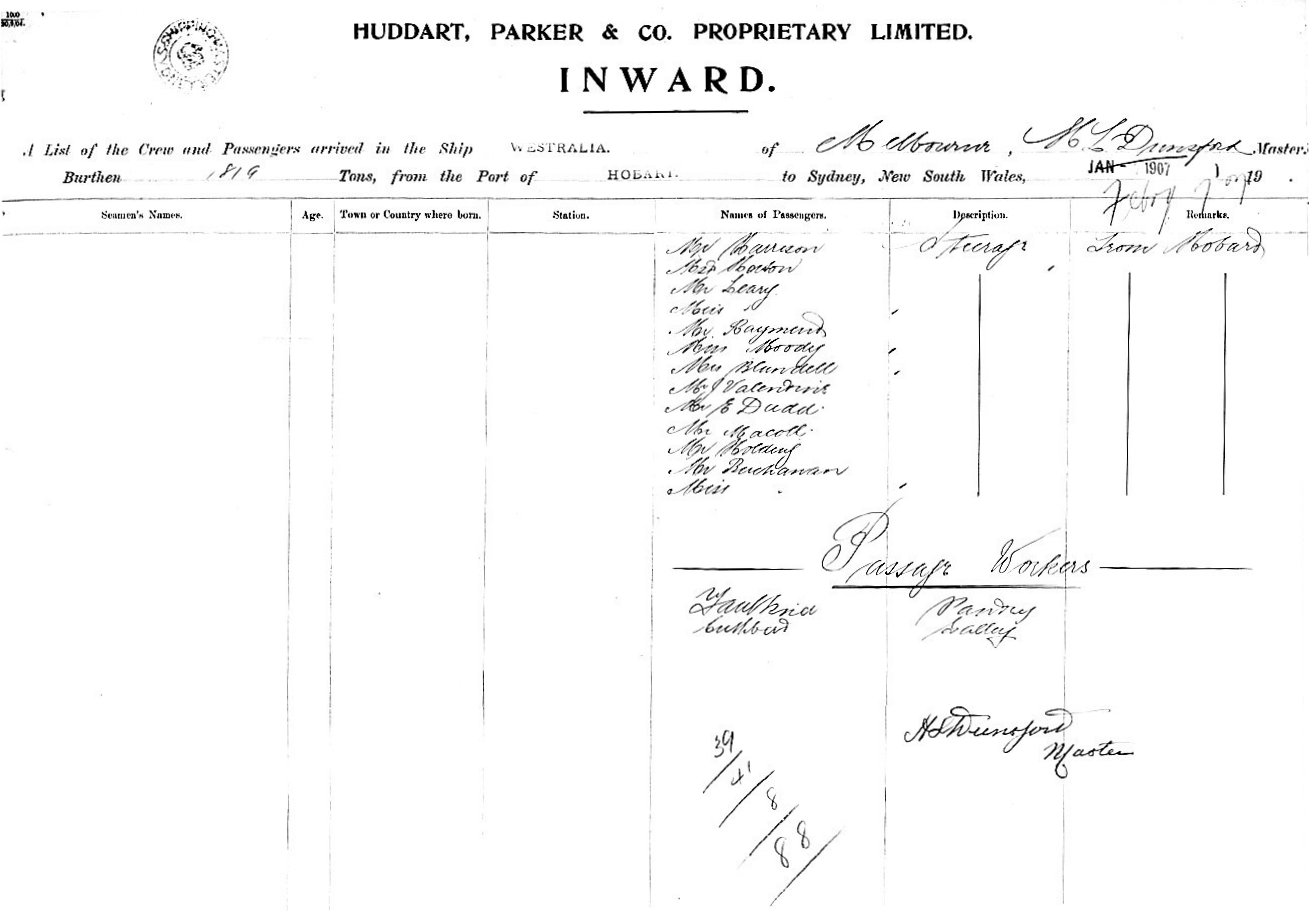 HUDDART, PARKER & CO. PROPRIETARY LIMITED.
INWARD.
A List of the Crew and Passengers arrived in the Ship WESTRALIA. of Melbourne, Dunsford Master,
Burthen 1819 Tons, from the Port of HOBART. to Sydney, New South Wales, JAN 1907 19 .
Seamen's Names. Age. Town or Country where born. Station. Names of Passengers. Description. Remarks.
Mr Harrison Steerage From Hobard
Horton
Mr Leary
Miss "
Mr Raymond
Miss Moody
Mrs Blundell
Mr J Valentine
Mr E Dudd
Mr Macoll
Mr Holding
Mr Buchanan
Miss "
Passage Workers
Pantry
Cuthbert Galley
Dunsford
Master
39
41
8
88